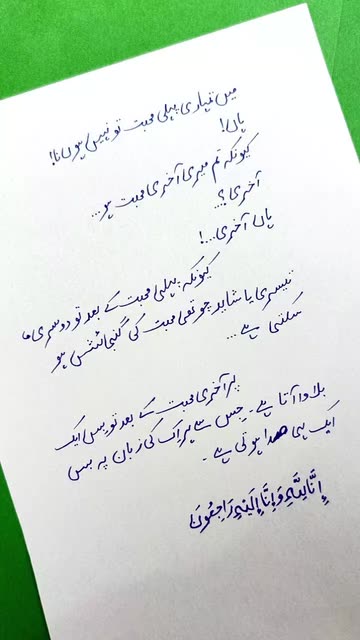 میں تمہاری پہلی محبت تو نہیں ہوں نا!
ہاں!
کیونکہ تم میری آخری محبت ہو...
آخری؟...
ہاں آخری...!
کیونکہ پہلی محبت کے بعد تو دوسری،
تیسری یا شاید چوتھی محبت کی گنجائش ہو
سکتی ہے...
پر آخری محبت کے بعد تو بس ایک
بلاوا آتا ہے۔ جس سے ہر اک کی زبان پہ بس
ایک ہی صدا ہوتی ہے۔
إِنَّا لِلّٰهِ وَإِنَّا إِلَيْهِ رَاجِعُونَ